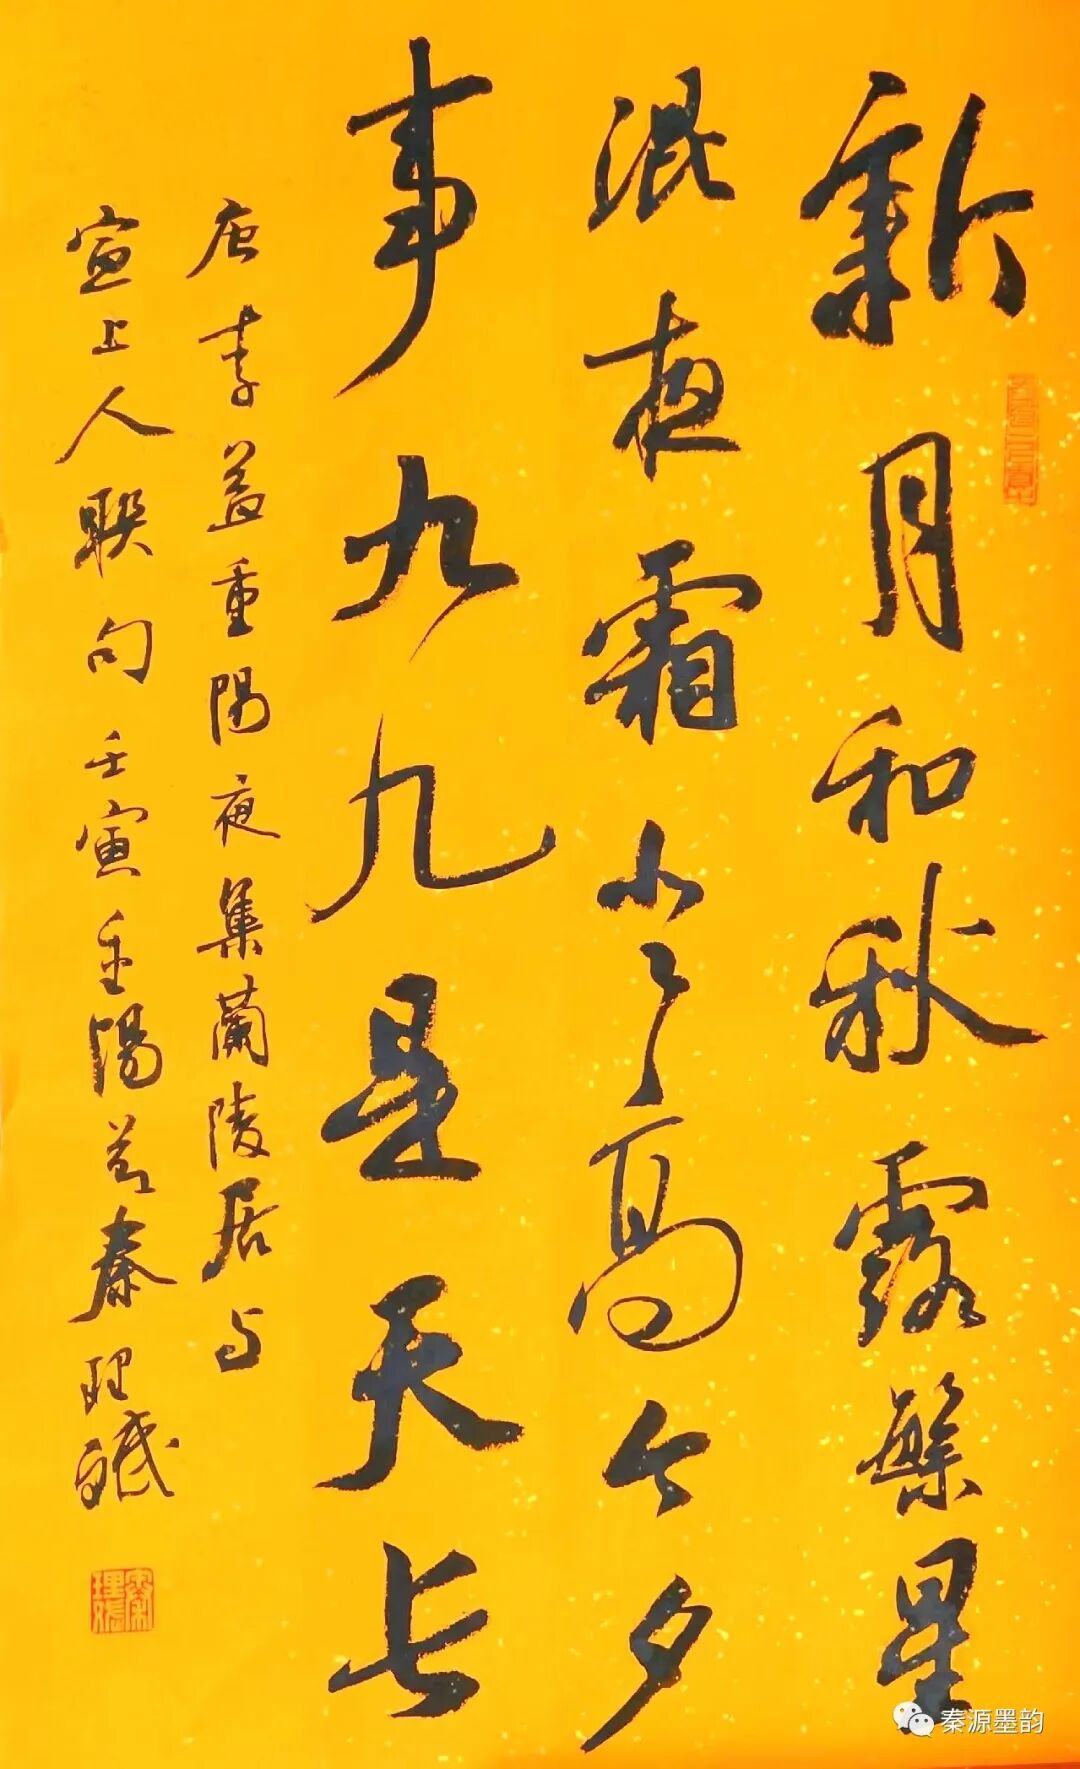 新月和秋露繁星
混夜霜登高今夕
事九九是天长
唐李益重陽夜集蘭陵居与
宣上人聯句壬寅重陽秦理
秦源墨韵